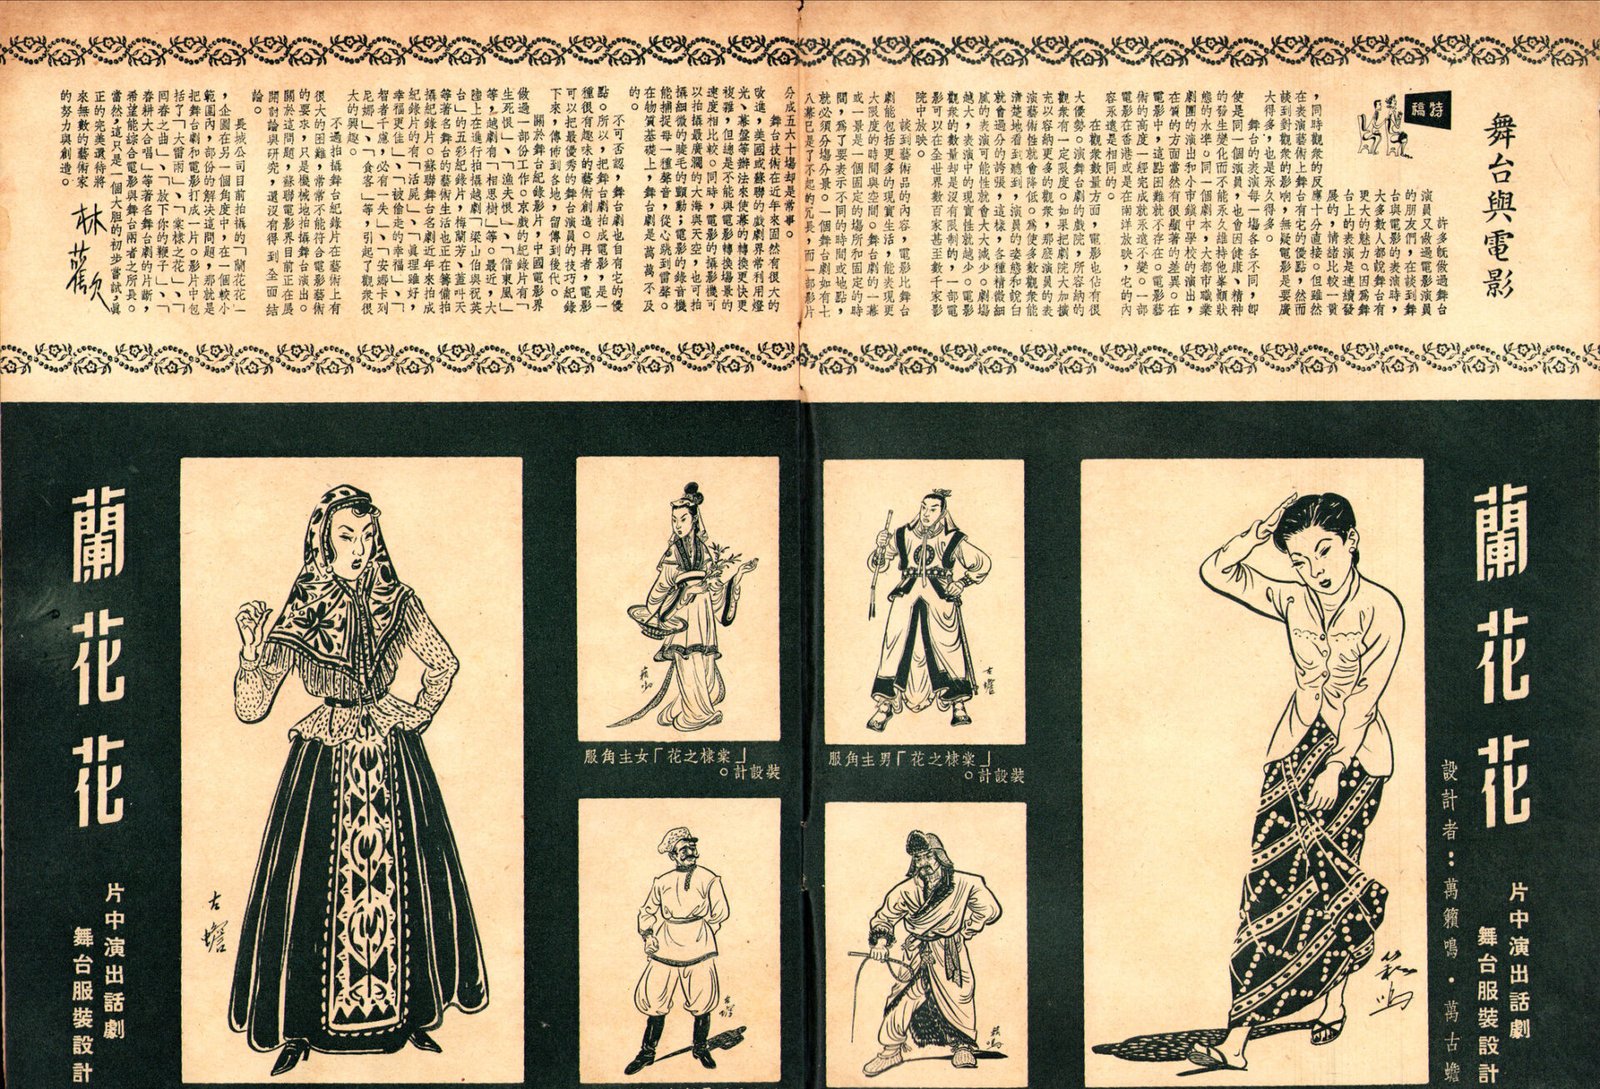 舞台與電影
特稿
許多既做過舞台
演員又做過電影演員
的朋友們，在談到舞
台與電影的表演時，
大多數人都說舞台有
更大的魅力。因爲舞
台上的表演是連續發
展的，情緒比較一貫
，同時觀衆的反應十分直接。但雖然
在表演藝術上舞台有它的優點，然而
談到對觀衆的影响，無疑電影是要廣
大得多，也是永久得多。
舞台的表演每一場各不同，卽
使是同一個演員，也會因健康、精神
的發生變化而不能永久維持他峯顚狀
態的水準。同一個劇本，大都市職業
劇團的演出和小市鎭中學校的演出，
在質的方面當然有很顯著的差異。在
電影中，這點困難就不存在。電影藝
術的高度一經完成就永遠不變。一部
電影在香港或是在南洋放映，它的內
容永遠是相同的。
在觀衆數量方面，電影也佔有很
大優勢。演舞台劇的戲院，所容納的
觀衆有一定限度。如果把劇院大加擴
充以容納更多的觀衆，那麽演員的表
演藝術性就會降低。爲使多數觀衆能
淸楚地看到聽到，演員的姿態和說白
就會過分的誇張，這樣，各種精微作
風的表演可能性就會大大減少。劇場
越大，表演中的現實性就越少。電影
觀衆的數量却是沒有限制的，一部電
影可以在全世界數百家甚至數千家影
院中放映。
談到藝術品的內容，電影比舞台
劇能包括更多的現實生活，能表現更
大限度的時間與空間。舞台劇的一幕
或一景是一個固定的場所和固定的時
間，爲了要表示不同的時間或地點，
就必須分場分景。一個舞台劇如有七
八幕已是了不起的冗長，而一部影片
分成五六十場却是常事。
舞台技術在近年來固然有很大的
改進，美國或蘇聯的戲劇界常利用燈
光、幕盤等辦法來使幕的轉換更快更
複雜，但總是不能與電影轉換場景的
速度相比較。同時，電影的攝影機可
以拍攝最廣濶的大海與天空，也可拍
攝細微的睫毛的顫動；電影的錄音機
能捕捉每一種聲音，從心跳到雷聲。
在物質基礎上，舞台劇是萬萬不及
的。
不可否認，舞台劇也自有它的優
點。所以，把舞台劇拍成電影，是一
種很有趣味的藝術創造。再者，電影
可以把最優秀的舞台演員的技巧紀錄
下來，傳佈到各地，留傳到後代。
關於舞台紀錄影片，中國電影界
做過一部份工作。京戲的紀錄片有「
生死恨」、「漁夫恨」、「借東風」
等，越劇有「相思樹」等。最近，大
陸上在進行拍攝越劇「梁山伯與祝英
台」的五彩紀錄片，梅蘭芳、蓋叫天
等著名舞台的藝術生活也正在籌備拍
攝紀錄片。蘇聯舞台名劇近年來拍成
紀錄片的有「活屍」、「眞理雖好，
幸福更佳」、「被偷走的幸福」、「
智者千慮，必有一失」、「安娜卡列
尼娜」、「食客」等，引起了觀衆很
大的興趣。
不過拍攝舞台紀錄片在藝術上有
很大的困難，常常不能符合電影藝術
的要求，只是機械地拍攝舞台演出。
關於這問題，蘇聯電影界目前正在展
開討論與研究，還沒有得到全面結
論。
長城公司目前拍攝的「蘭花花」
，企圖在另一個角度中，在一個較小
範圍內，部份的解決這問題，那就是
把舞台劇和電影打成一片。影片中包
括了「大雷雨」、「棠棣之花」、「
回春之曲」、「放下你的鞭子」、「
春耕大合唱」等著名舞台劇的片斷，
希望能綜合電影與舞台兩者之所長。
當然，這只是一個大胆的初步嘗試，眞
正的完美還待將
來無數的藝術家
的努力與創造。
林歡
蘭花花
片中演出話劇
舞台服裝設計
設計者：萬籟鳴・萬古蟾
籟鳴
「棠棣之花」男主角服
裝設計。
古蟾
籟鳴
「棠棣之花」女主角服
裝設計。
籟鳴
古蟾
古蟾
蘭花花
片中演出話劇
舞台服裝設計